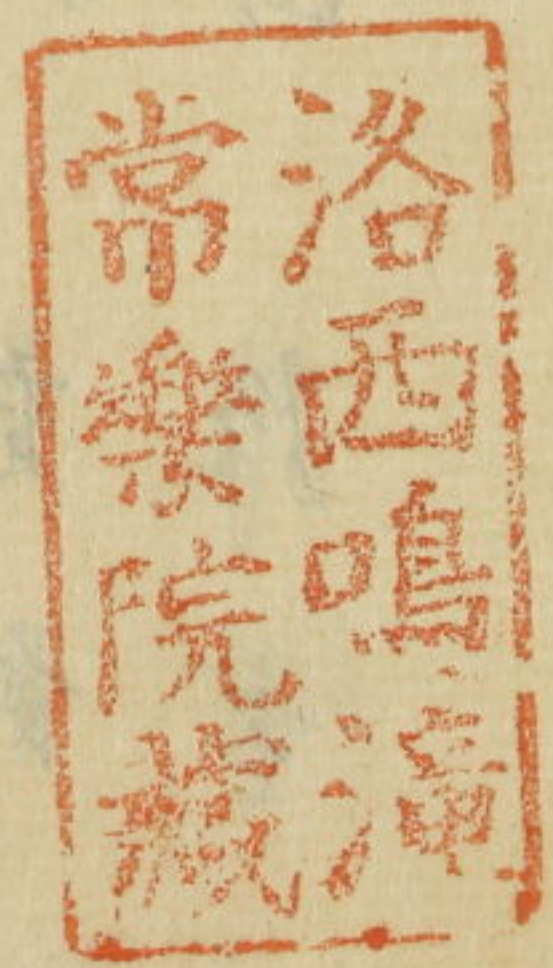 洛西鳴瀧
常樂院藏